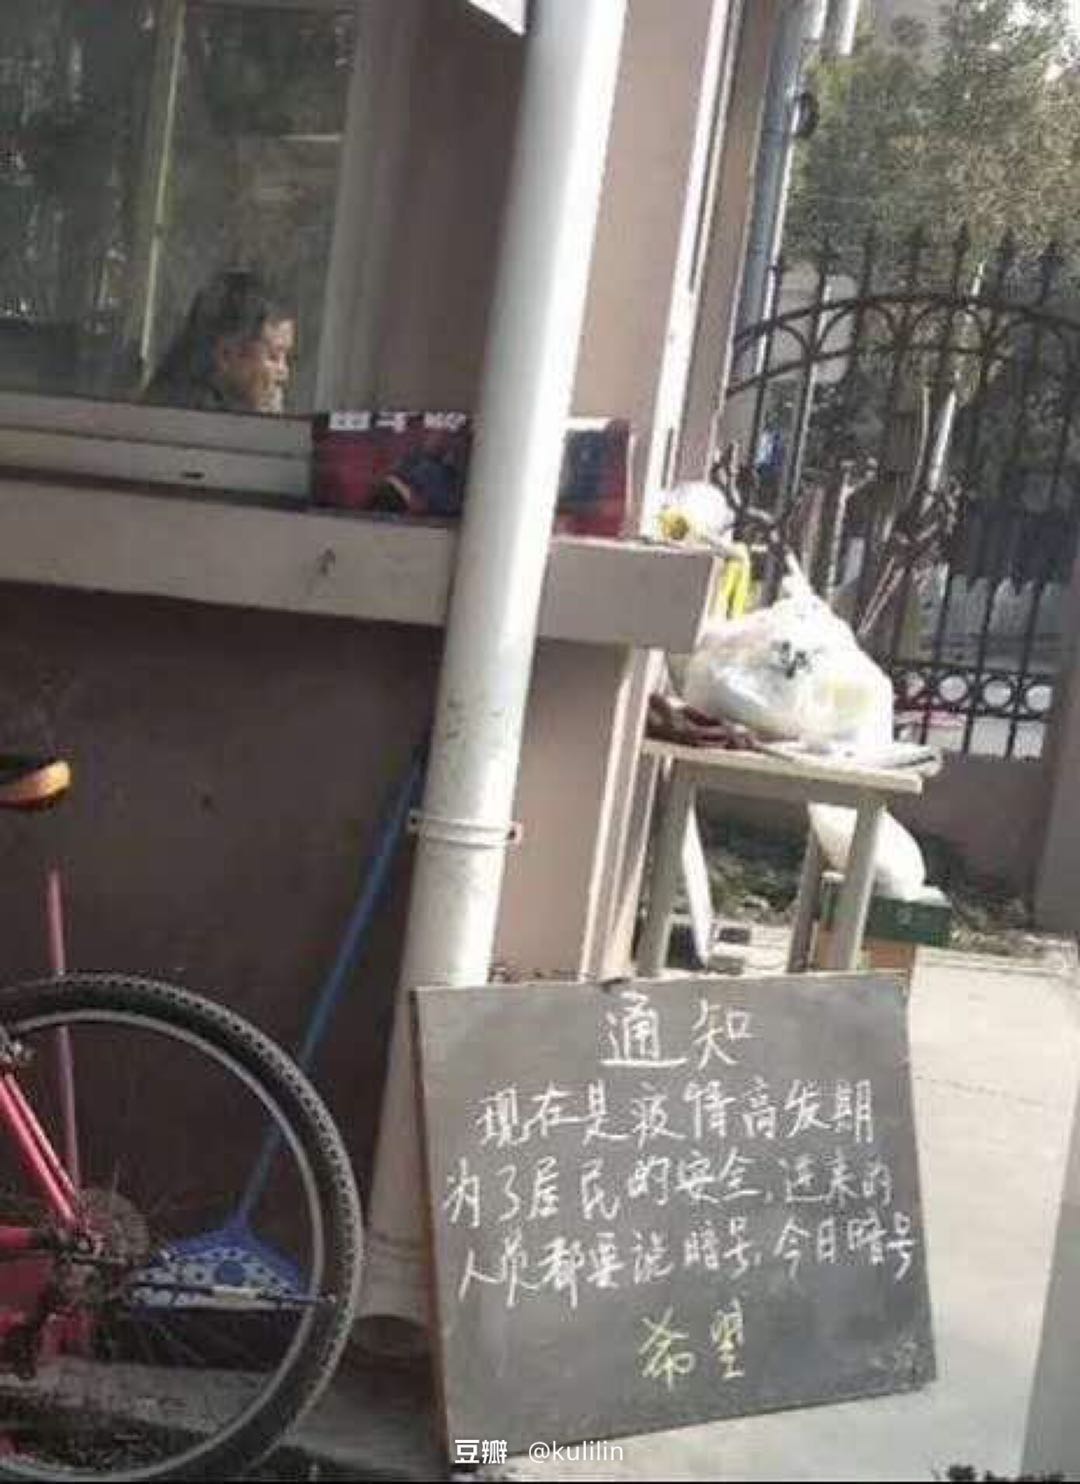 通知
现在是疫情高发期
为了居民的安全,进来的
人员都要说暗号,今日暗号
希望
豆瓣 @kulilin